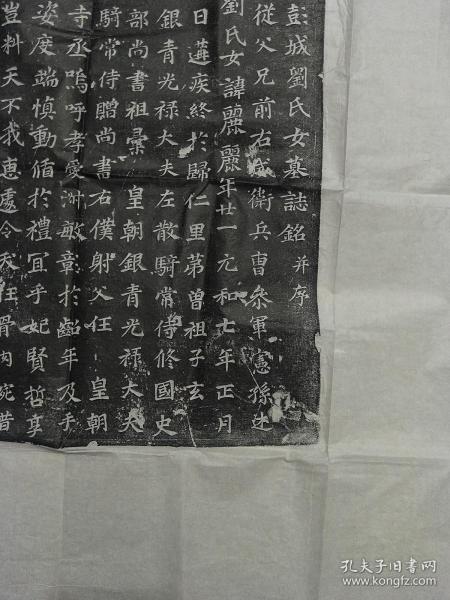 彭城劉氏女墓誌銘并序
從父兄前右武衛兵曹叅軍憲孫述
劉氏女諱麗麗年廿一元和七年正月
日遘疾終於歸仁里第曾祖子玄
銀青光祿大夫左散騎常侍修國史
部尚書祖彙皇朝銀青光祿大夫
騎常侍贈尚書右僕射父任皇朝
寺丞嗚呼孝愛淑敏章於齠年及乎
姿度端慎動循於禮冝乎妃賢哲享
豈料天不我惠處令夭枉骨肉宛昔
孔夫子旧书网
www.kongfz.com